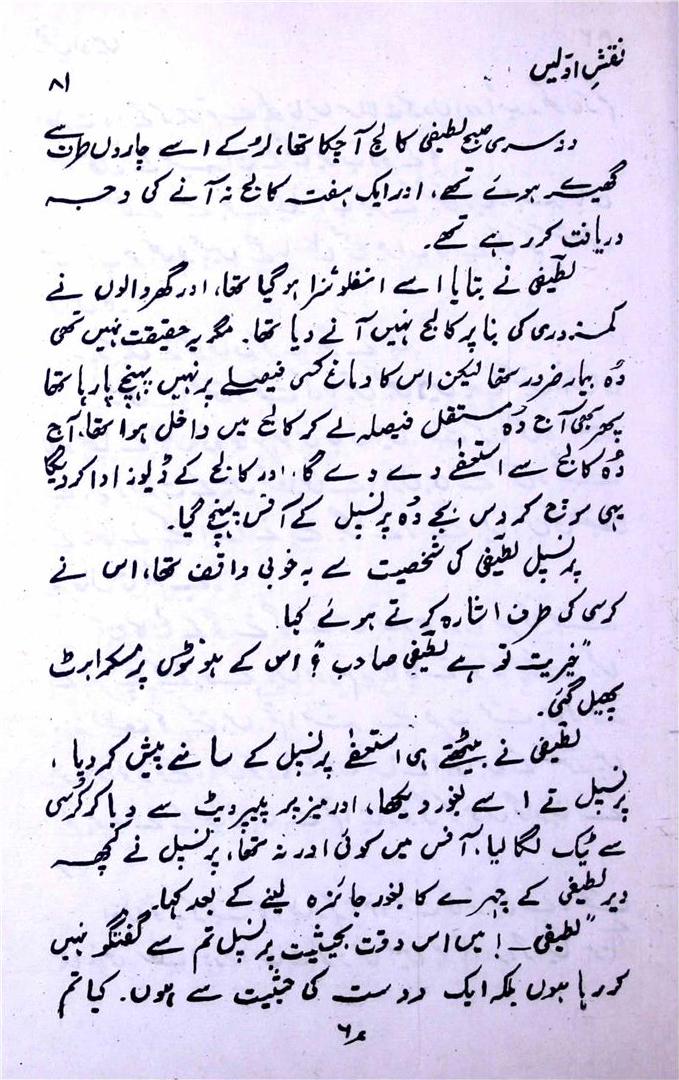 نقشِ اوّلیں
۸۱
دوسری صبح لطیفی کالج آ چکا تھا، لڑکے اسے چاروں طرف سے
گھیرے ہوئے تھے، اور ایک ہفتہ کالج نہ آنے کی وجہ
دریافت کر رہے تھے۔
لطیفی نے بتایا اسے انفلوئنزا ہو گیا تھا، اور گھر والوں نے
کمزوری کی بنا پر کالج نہیں آنے دیا تھا۔ مگر یہ حقیقت نہیں تھی
وُہ بیمار ضرور تھا لیکن اس کا دماغ کسی فیصلے پر نہیں پہنچ پا رہا تھا
پھر بھی آج وُہ مستقل فیصلہ لے کر کالج میں داخل ہوا تھا، آج
وُہ کالج سے استعفےٰ دے دے گا، اور کالج کے ڈیوز ادا کر دیگا
یہی سوچ کر دس بجے وُہ پرنسپل کے آفس پہنچ گیا۔
پرنسپل لطیفی کی شخصیت سے بہ خوبی واقف تھا، اس نے
کرسی کی طرف اشارہ کرتے ہوئے کہا۔
"خیریت تو ہے لطیفی صاحب؟" اس کے ہونٹوں پر مسکراہٹ
پھیل گئی۔
لطیفی نے بیٹھتے ہی استعفےٰ پرنسپل کے سامنے پیش کر دیا،
پرنسپل نے اسے بغور دیکھا، اور میز پر پیپرویٹ سے دبا کر کُرسی
سے ٹیک لگا لیا، آفس میں کوئی اور نہ تھا، پرنسپل نے کچھ
دیر لطیفی کے چہرے کا بغور جائزہ لینے کے بعد کہا۔
"لطیفی_! میں اس وقت بحیثیت پرنسپل تم سے گفتگو نہیں
کر رہا ہوں بلکہ ایک دوست کی حیثیت سے ہوں۔ کیا تم